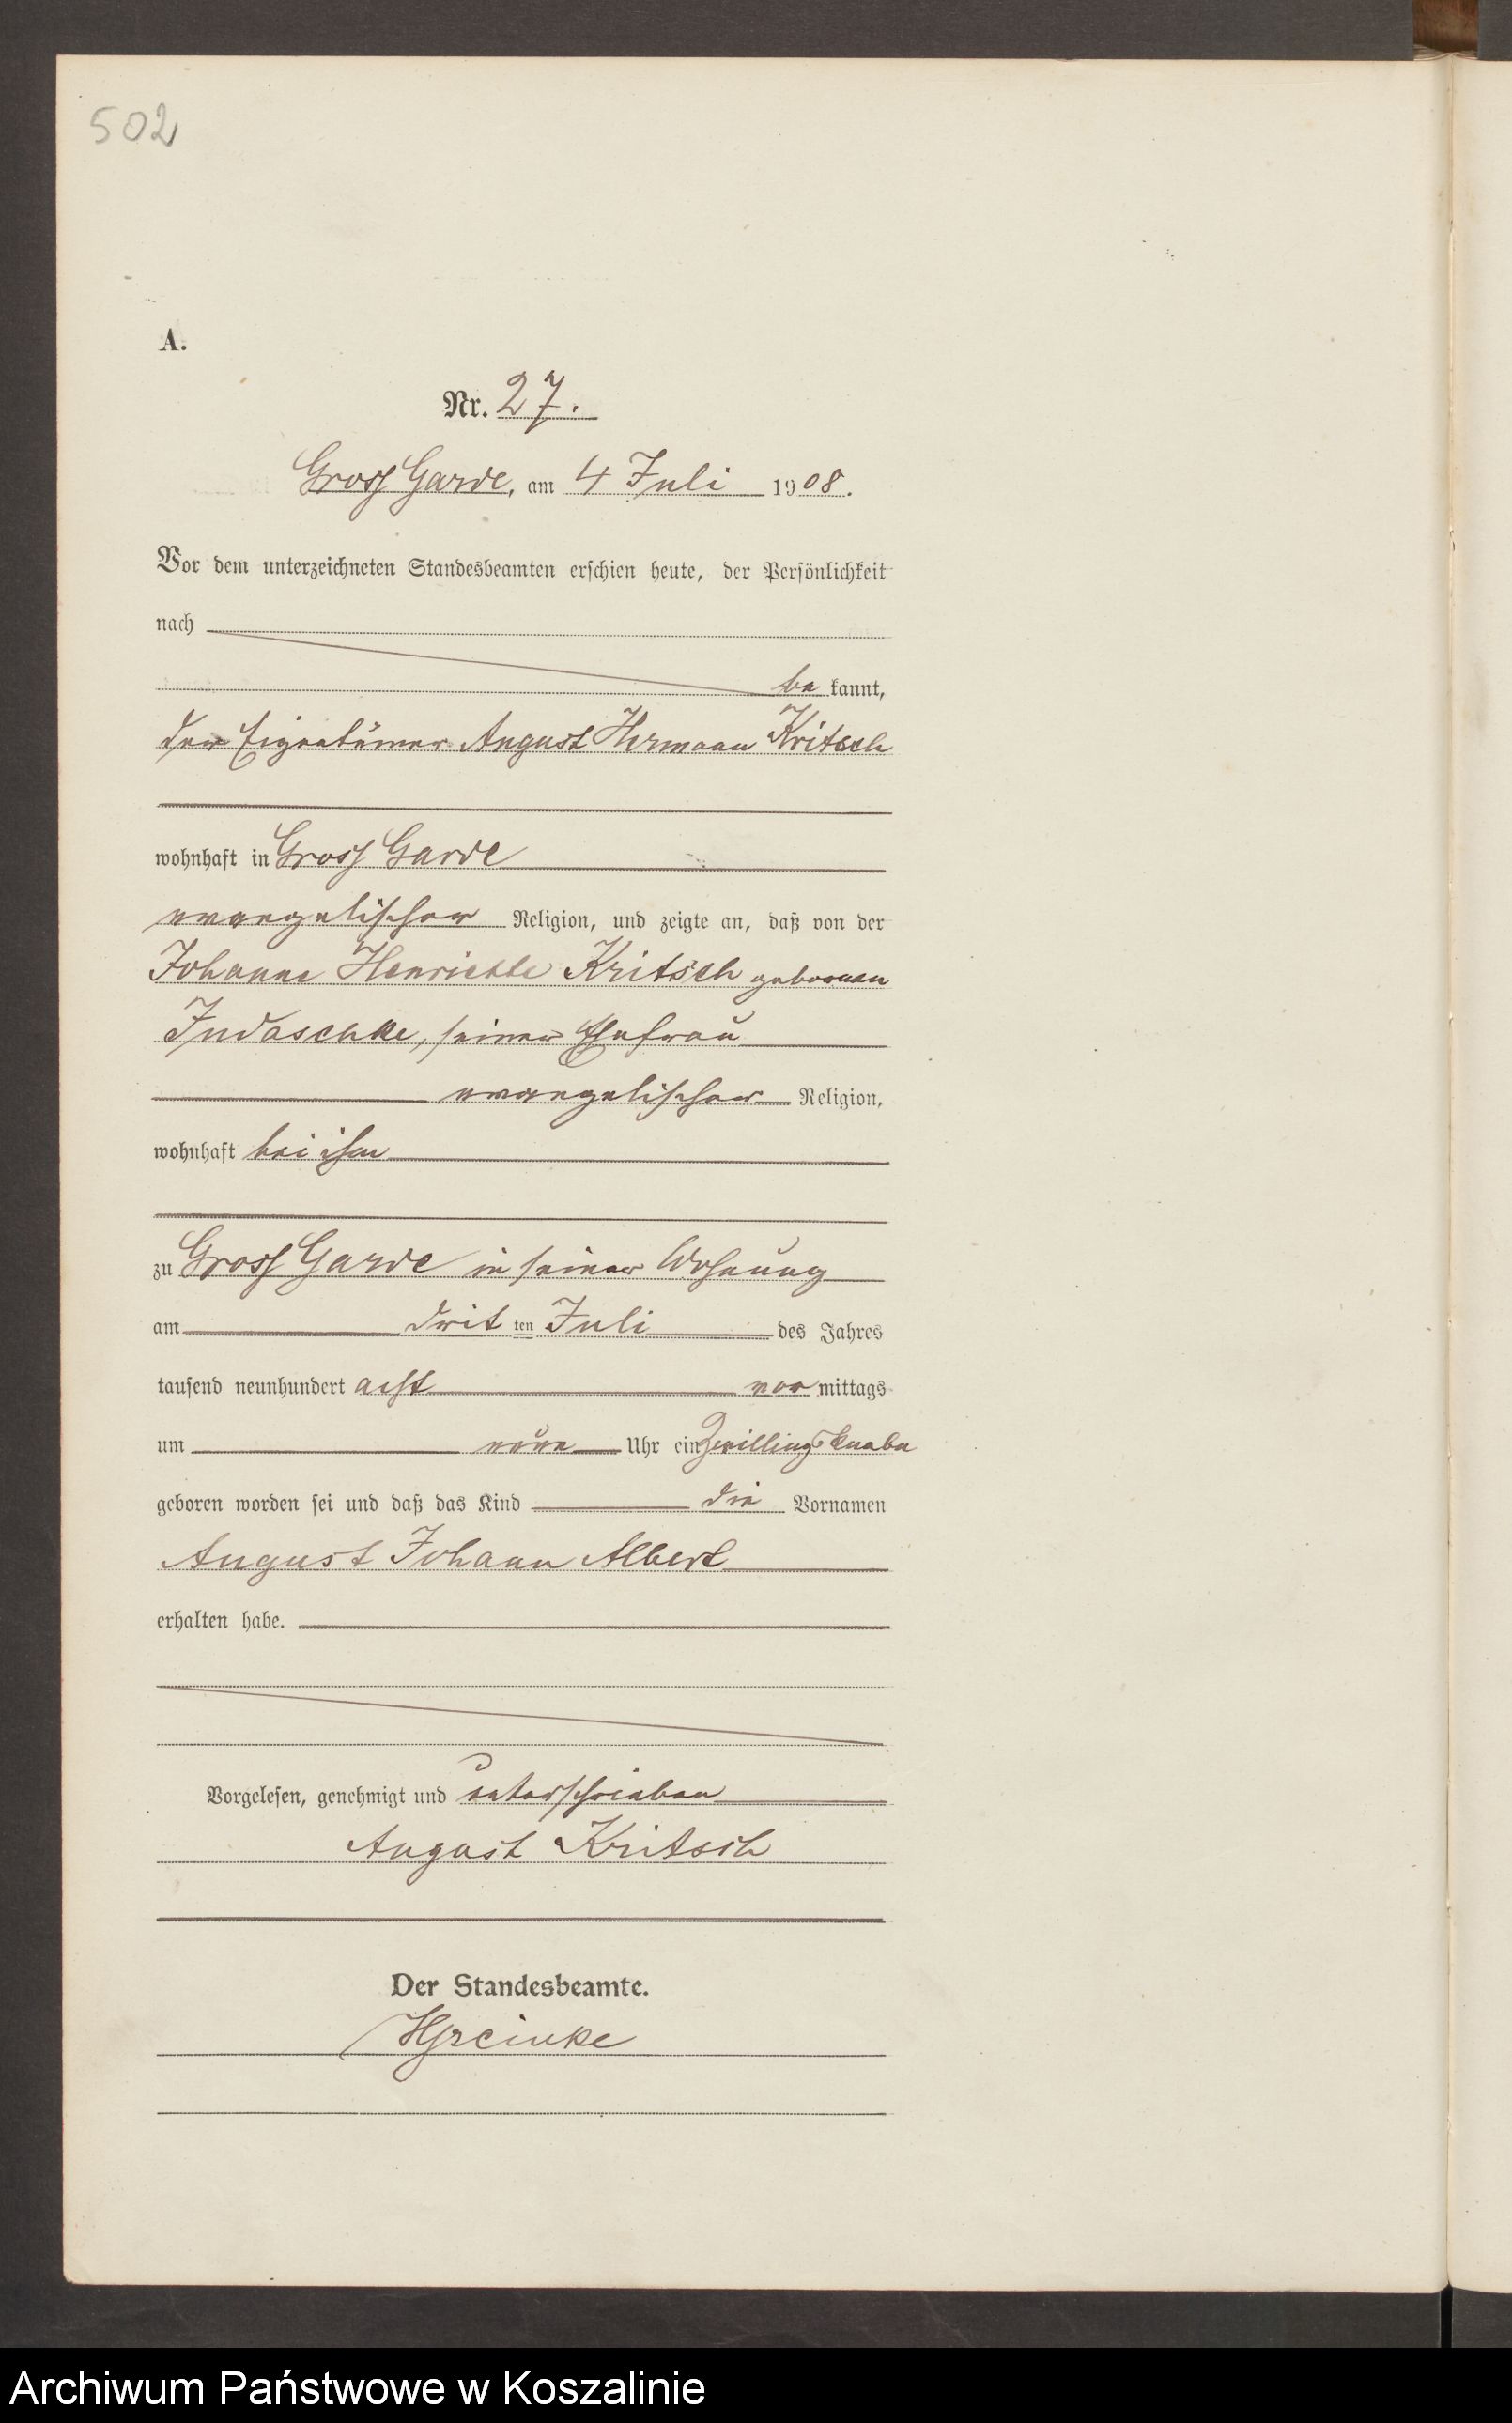 502
A.
Nr. 27.
Gross Garde, am 4 Juli 1908.
Vor dem unterzeichneten Standesbeamten erschien heute, der Persönlichkeit
nach
be kannt,
der Eigentümer August Hermann Kritsch
wohnhaft in Gross Garde
evangelischer Religion, und zeigte an, daß von der
Johanne Henriette Kritsch geborenen
Judaschke, seiner Ehefrau
evangelischer Religion,
wohnhaft bei ihm
zu Gross Garde in seiner Wohnung
am drit ten Juli des Jahres
tausend neunhundert acht vor mittags
um neun Uhr ein Zwillingsknabe
geboren worden sei und daß das Kind die Vornamen
August Johann Albert
erhalten habe.
Vorgelesen, genehmigt und unterschrieben
August Kritsch
Der Standesbeamte.
Archiwum Państwowe w Koszalinie